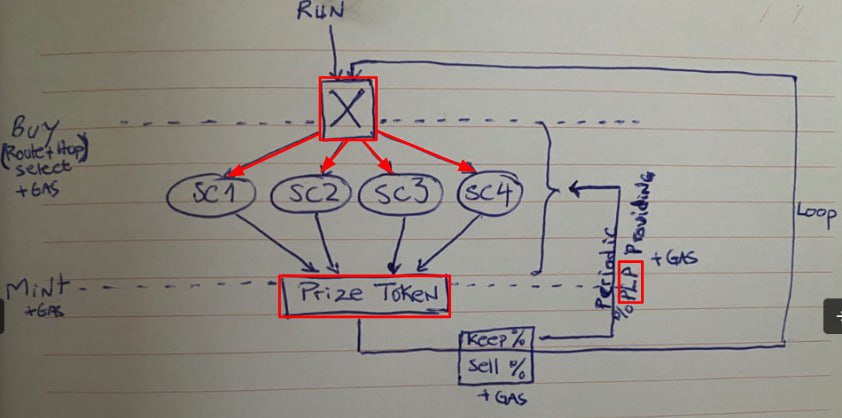 RUN
X
BUY
(Route + Hop)
select
+ GAS
SC1
SC2
SC3
SC4
Loop
Periodic
% PLP Providing
+ GAS
MINT
+ GAS
Prize Token
Keep %
Sell %
+ GAS